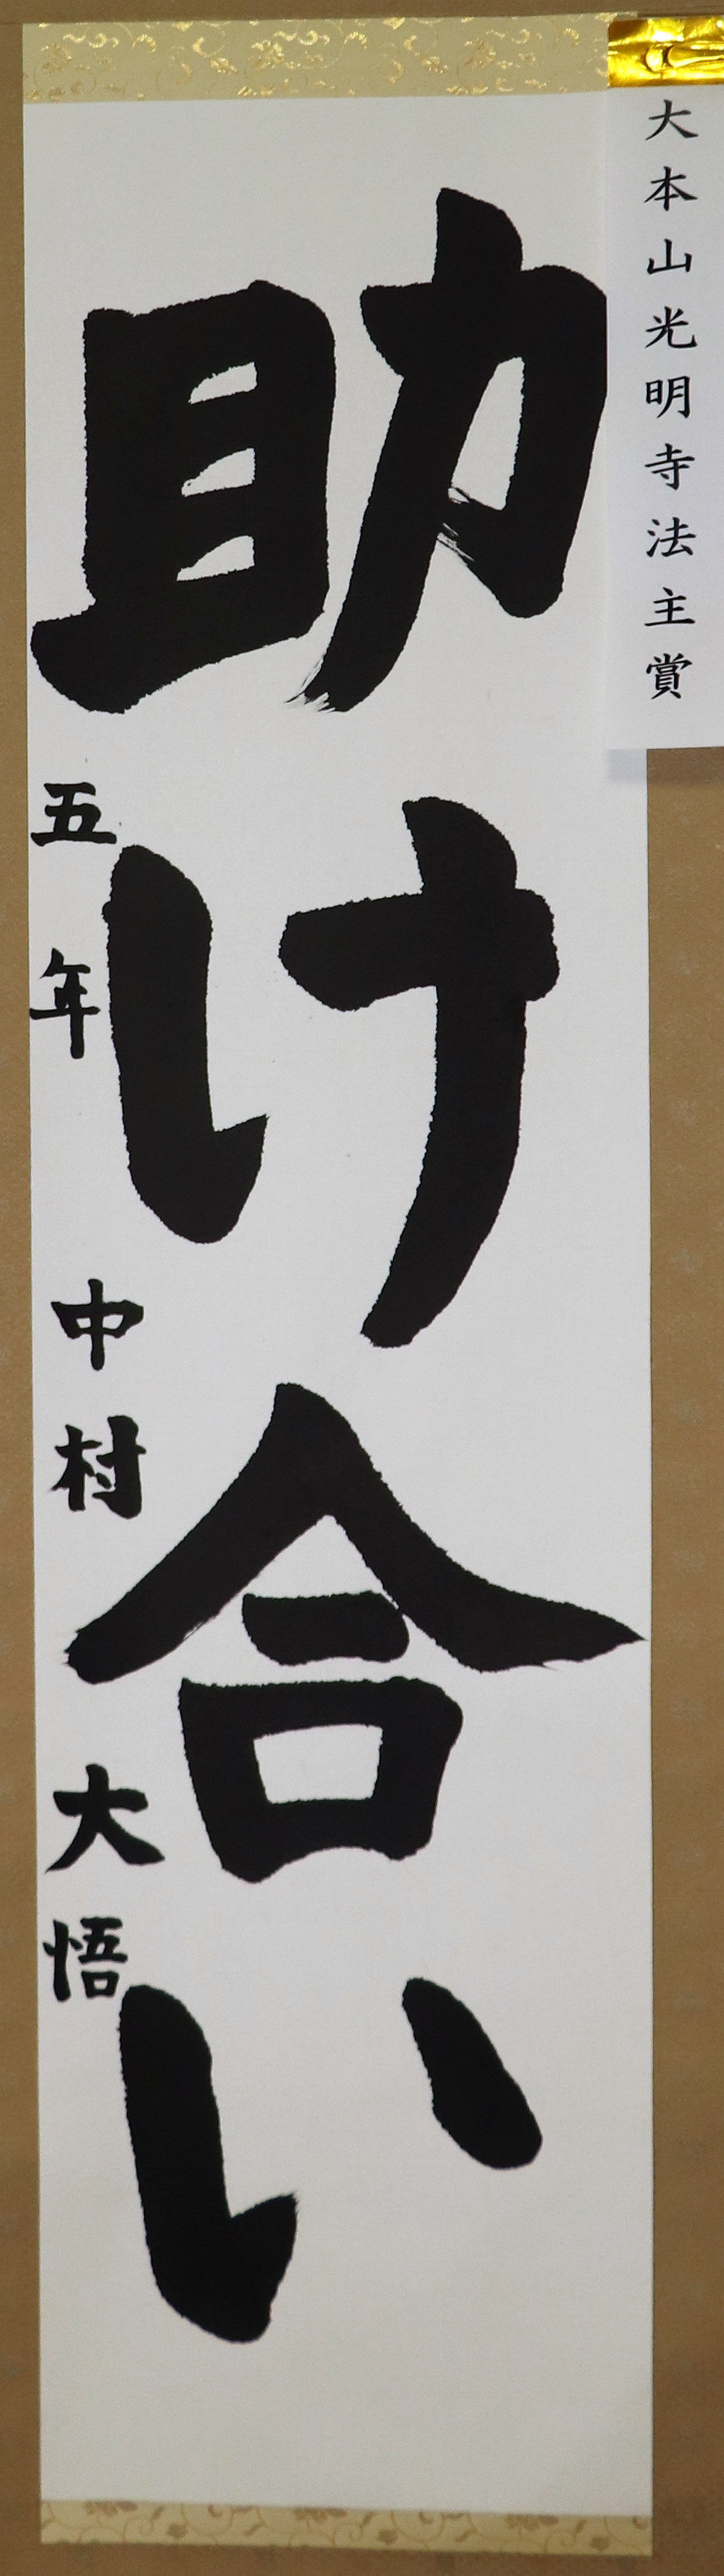 大本山光明寺法主賞
助け合い
五年 中村大悟